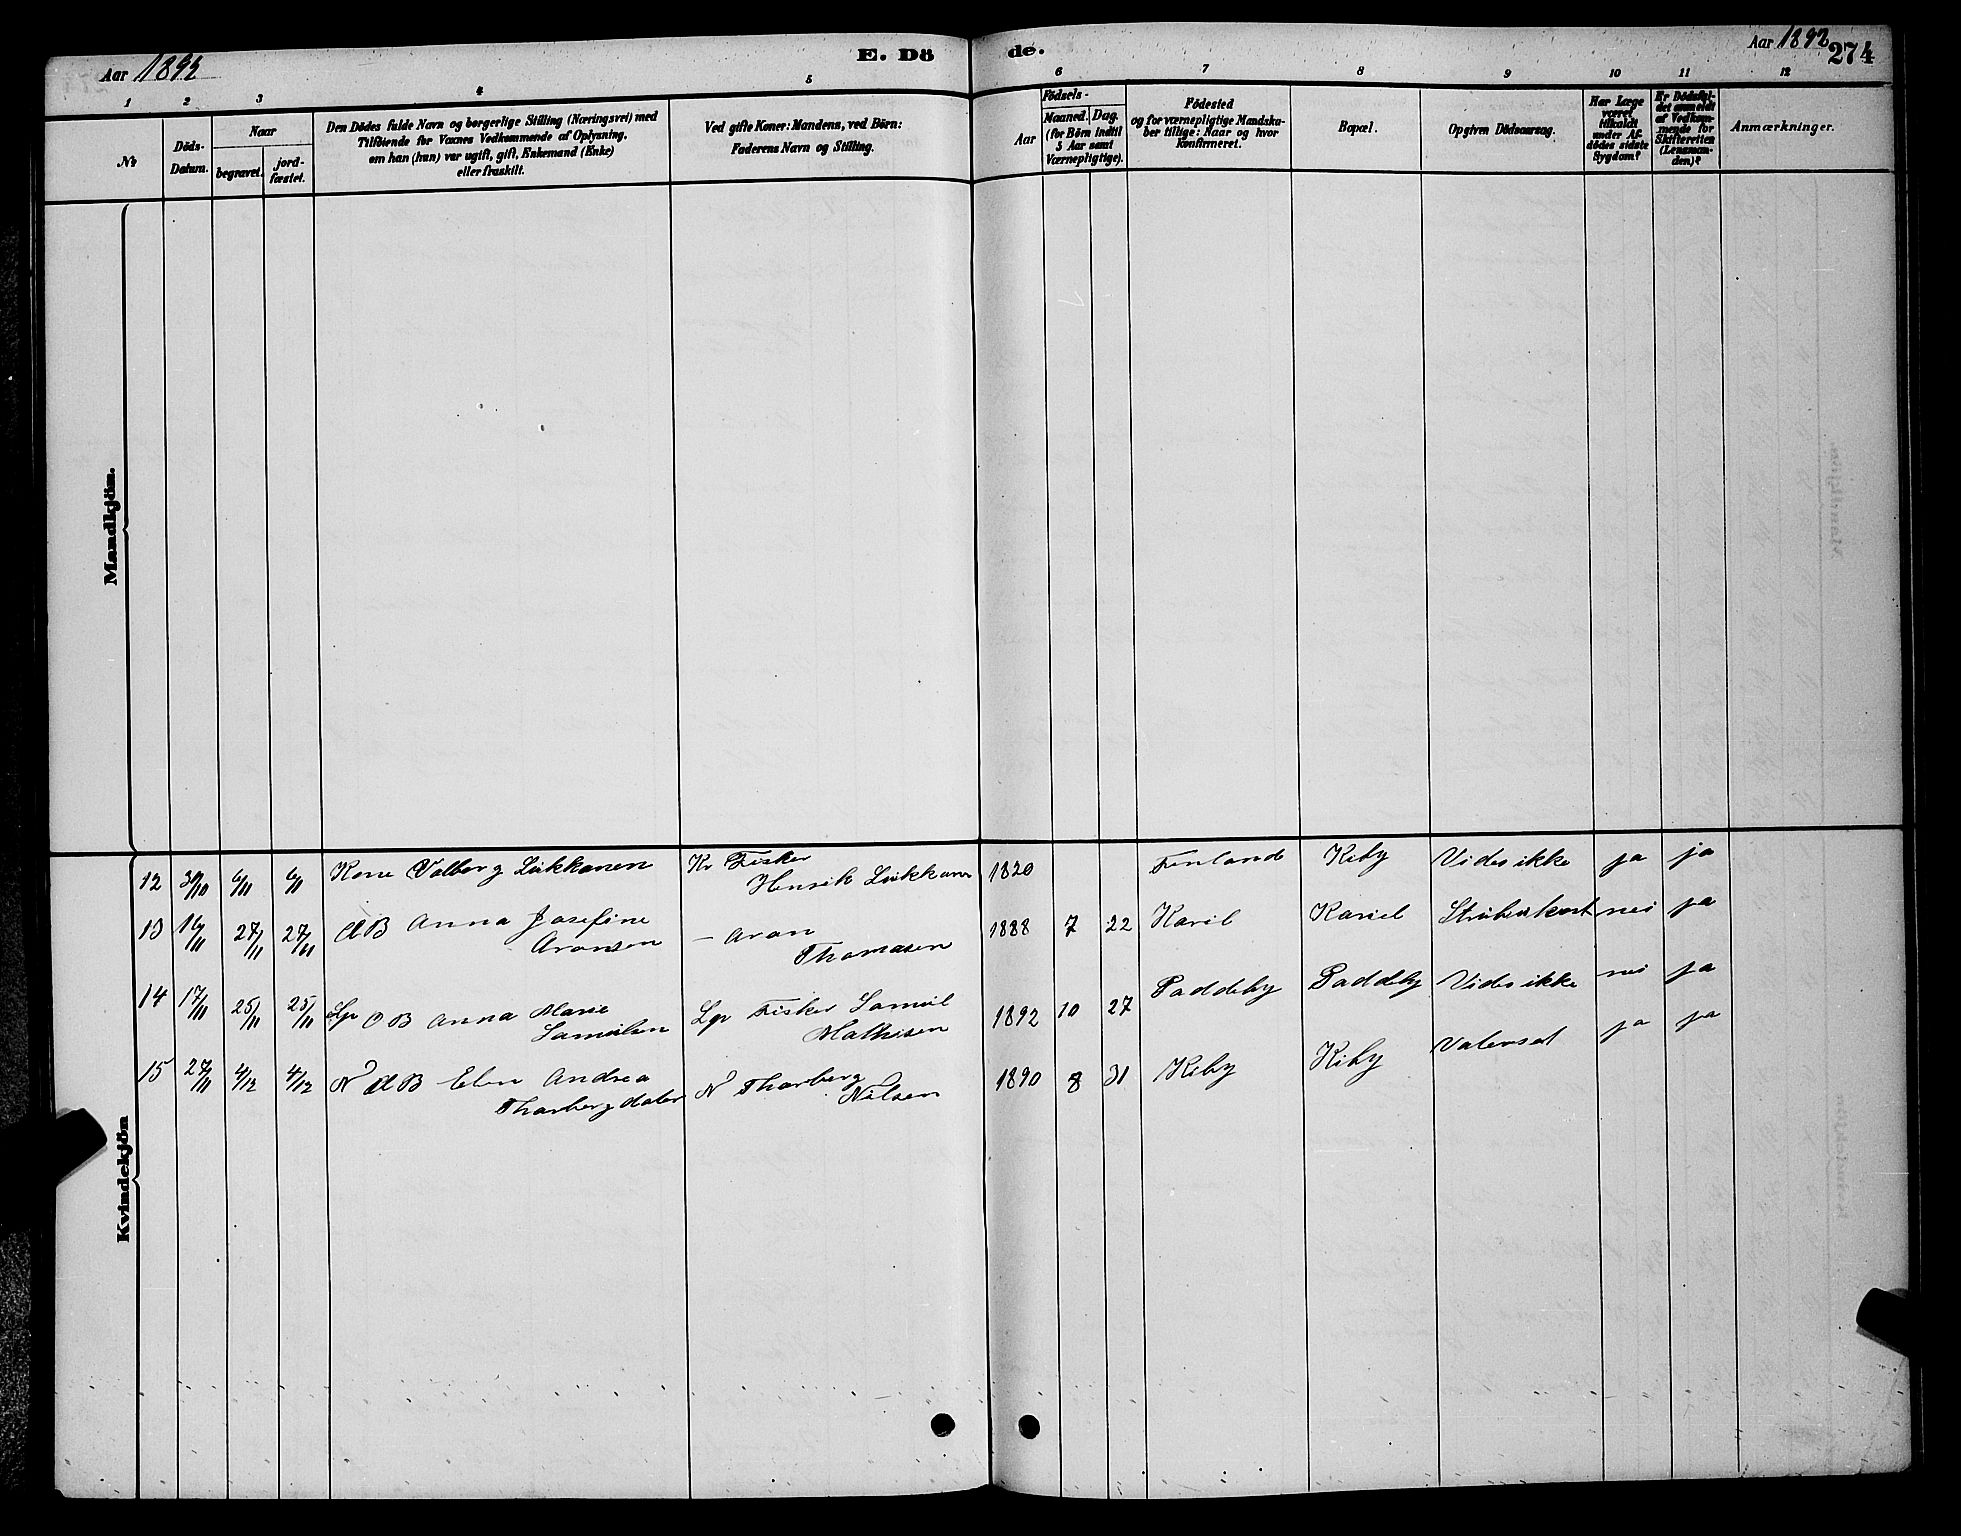 Aar 1892
E. Dö
de.
Aar 1892
274
1 2 3 4 5 6 7 8 9 10 11 12
№
Döds-
Datum.
Naar
begravet.
jord-
fæstet.
Den Dödes fulde Navn og borgerlige Stilling (Næringsvei) med
Tilföiende for Voxnes Vedkommende af Oplysning,
om han (hun) var ugift, gift, Enkemand (Enke)
eller fraskilt.
Ved gifte Koner: Mandens, ved Börn:
Faderens Navn og Stilling.
Födsels-
Aar
Maaned.
Dag.
(for Börn indtil
5 Aar samt
Værnepligtige).
Födested
og for værnepligtige Mandska-
ber tillige: Naar og hvor
konfirmeret.
Bopæl.
Opgiven Dödsaarsag.
Har Læge
været
tilkaldt
under Af-
dödes sidste
Sygdom?
Er Dödsfal-
det anmeldt
af Vedkom-
mende for
Skifteretten
(Lensman-
den)?
Anmærkninger.
Mandkjön.
Kvindekjön
12 30/10 6/11 6/11 Kone Valborg Liikkanen Kv Fisker 1820 Finland Kiby Vides ikke ja ja
Henrik Liikkanen
13 16/11 27/11 27/11 ÆB Anna Josefine — Aron 1888 7 22 Kariel Kariel nei ja
Aronsen Thomasen
14 17/11 25/11 25/11 Lp ÆB Anna Marie Lp Fisker Samuel 1892 10 27 Paddeby Paddeby Vides ikke nei ja
Samuelsen Mathisen
15 27/11 4/12 4/12 N ÆB Elen Andrea N Thorberg 1890 8 31 Kiby Kiby ja ja
Thorbergdater Nilsen